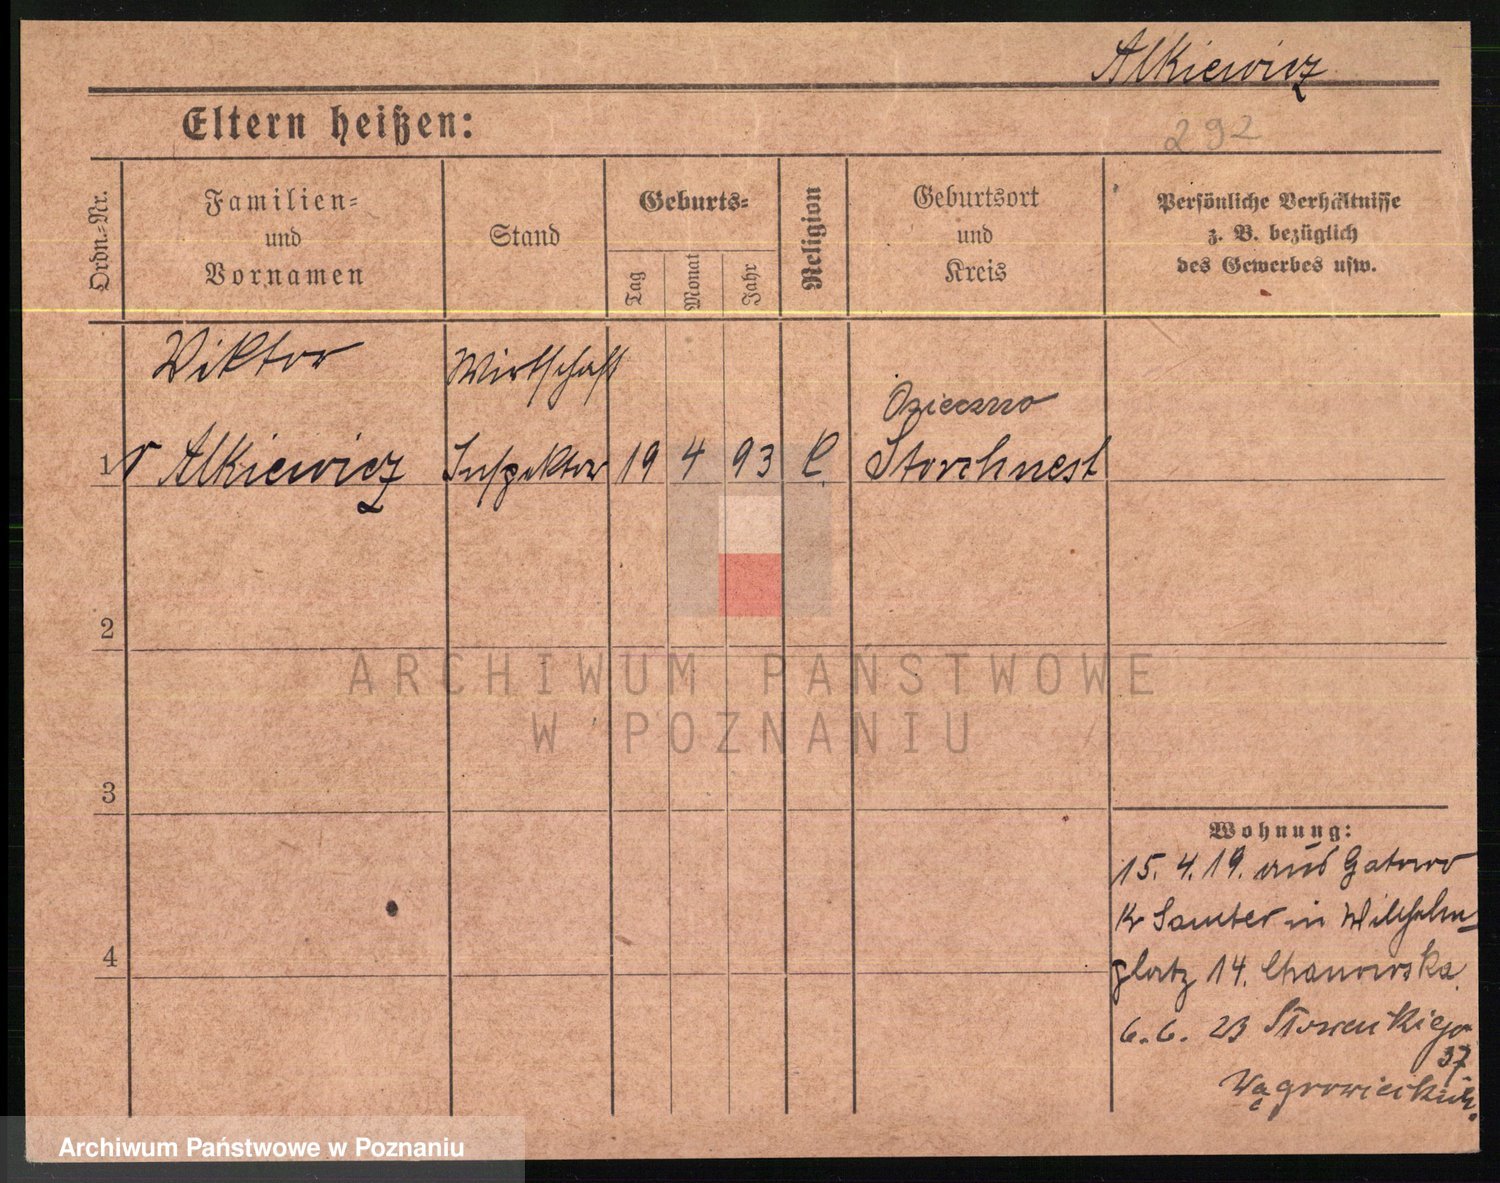 Alkiewicz
Eltern heißen:
292
Ordn.-Nr.
Familien-
und
Vornamen
Stand
Geburts-
Tag
Monat
Jahr
Religion
Geburtsort
und
Kreis
Persönliche Verhältnisse
z. B. bezüglich
des Gewerbes usw.
Viktor
Wirtschaft
Osieczno
1 Alkiewicz Inspektor 19 4 93 C. Storchnest
2
3
4
Wohnung:
15. 4. 19. aus Gatowo
Kr Samter in Wilhelm-
platz 14.
6. 6. 23
37.
ARCHIWUM PAŃSTWOWE
W POZNANIU
Archiwum Państwowe w Poznaniu